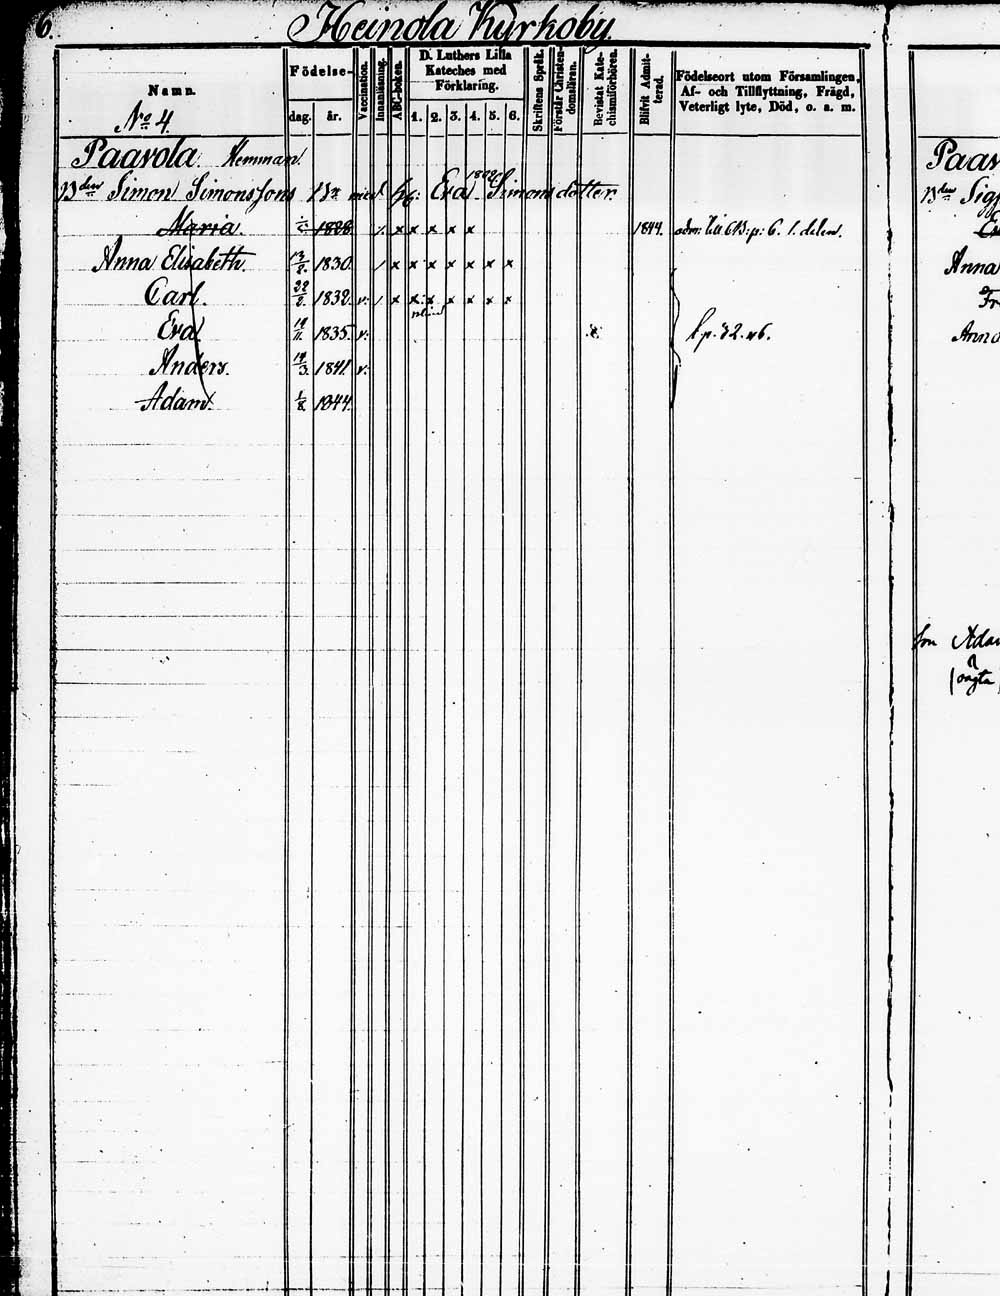 6.
Heinola Kyrkoby.
Namn.
No 4.
Födelse-
dag.
år.
Vaccination.
Innanläsning.
ABC-boken.
D. Luthers Lilla
Kateches med
Förklaring.
1. 2. 3. 4. 5. 6.
Skriftens Språk.
Förstår Christen-
domsläran.
Bevistat Kate-
chismiförhören.
Blifvit Admit-
terad.
Födelseort utom Församlingen,
Af- och Tillflyttning, Frägd,
Veterligt lyte, Död, o. a. m.
Paavola. Hemman.
Bden Simon Simonssons Bn med Eva Simonsdotter.
Maria. 1828 x x x x x 1844. adm: till p: 6. 1. delen.
Anna Elisabeth. 13/2. 1830. / x x x x x x x
Carl. 22/2. 1832. v: / x x x x x x x
Eva 19/11. 1835. v: x p. 32.
Anders. 19/3. 1841 v:
Adam. 1/8. 1844.
Paav
Bden Sig
Anna
Fr
Anna
Son Ada